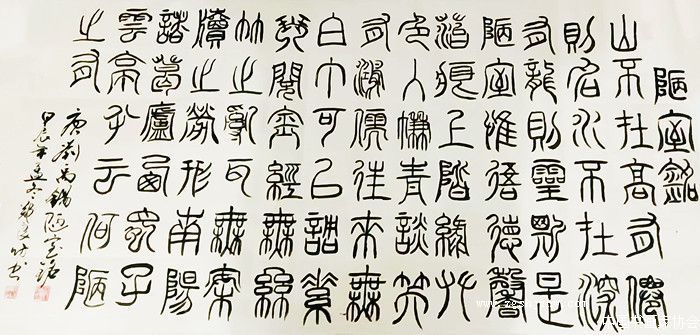 陋室銘
山不在高有僊
則名水不在深
有龍則靈斯是
陋室惟吾德馨
苔痕上階綠艸
色入簾青談笑
有鴻儒往來無
白丁可以調素
琴閱金經無絲
竹之亂耳無案
牘之勞形南陽
諸葛廬西蜀子
雲亭孔云何陋
之有
唐劉禹錫陋室銘
甲辰年孟冬 書